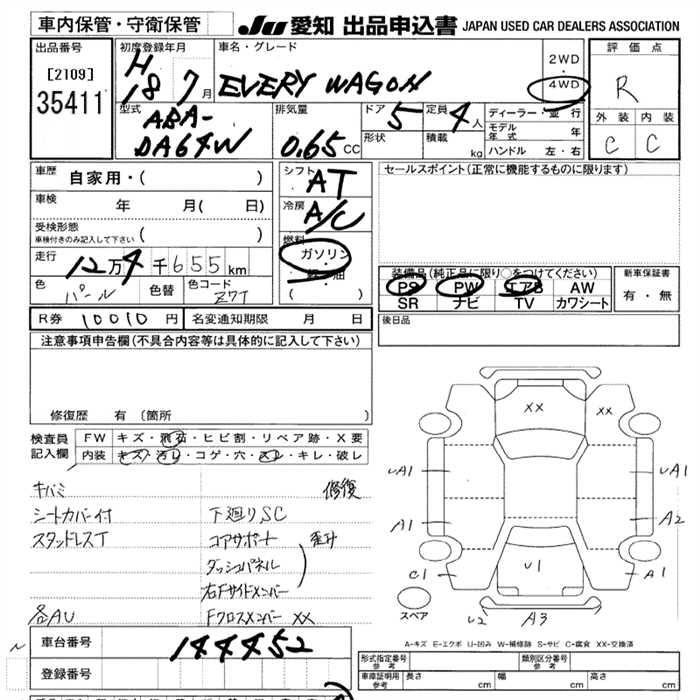 車内保管・守衛保管
JU 愛知 出品申込書 JAPAN USED CAR DEALERS ASSOCIATION
出品番号
[2109]
35411
初度登録年月
H
18 7 月
車名・グレード
EVERY WAGON
2WD
・
4WD
評価点
R
外装 内装
C C
型式
ABA-
DA64W
排気量
0.65 CC
ドア 5
定員 4 人
形状
積載 kg
ディーラー・並行
モデル年式 年
ハンドル 左・右
車歴 自家用・( )
車検 年 月( 日)
受検形態
車検付きのみ記入して下さい ( )
走行 12 万 4 千 655 km
色 パール
色替
色コード Z7T
R券 10010 円 名変通知期限 月 日
シフト AT
冷房 A/C
燃料
ガソリン
・
軽油
( )
セールスポイント(正常に機能するものに限ります)
装備品(純正品に限り○をつけてください)
PS PW エアB AW
SR ナビ TV カワシート
新車保証書
有・無
後日品
注意事項申告欄(不具合内容等は具体的に記入して下さい)
修復歴 有 (箇所
検査員
記入欄
FW キズ・飛石・ヒビ割・リペア跡・X要
内装 キズ・汚レ・コゲ・穴・スレ・キレ・破レ
キバミ 修復
シートカバー付 下廻りSC
スタッドレスT コアサポート 歪み
ダッシュパネル
右Fサイドメンバー
各AU Fクロスメンバー XX
XX XX
UA1 UA1
A1 A2
C1 U1 A1
スペア
U2 A3
A-キズ E-エクボ U-凹み W-補修跡 S-サビ C-腐食 XX-交換済
車台番号 144452
登録番号
形式指定番号
参考
類別区分番号
参考
車庫証明用
参考
長さ cm 幅 cm 高さ cm